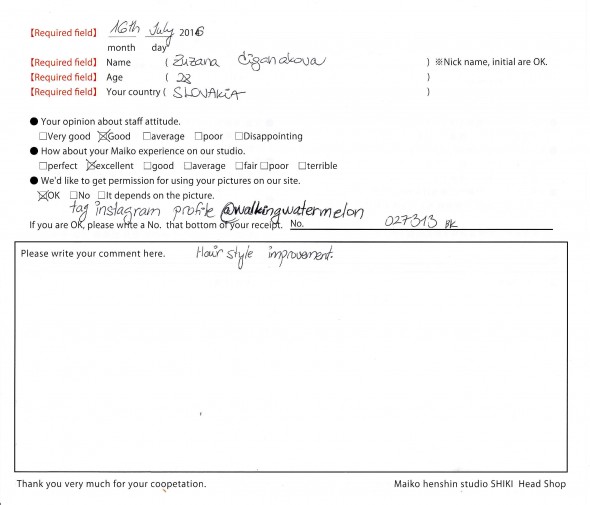 【Required field】 16th July 2016
month day
【Required field】 Name ( Zuzana Ciganakova ) ※Nick name, initial are OK.
【Required field】 Age ( 28 )
【Required field】 Your country ( SLOVAKIA )
● Your opinion about staff attitude.
□Very good ☒Good □average □poor □Disappointing
● How about your Maiko experience on our studio.
□perfect ☒excellent □good □average □fair □poor □terrible
● We'd like to get permission for using your pictures on our site.
☒OK □No □It depends on the picture.
tag instagram profile @walkingwatermelon
If you are OK, please write a No. that bottom of your receipt. No. 027313 BK
Please write your comment here. Hair style improvement.
Thank you very much for your coopetation. Maiko henshin studio SHIKI Head Shop